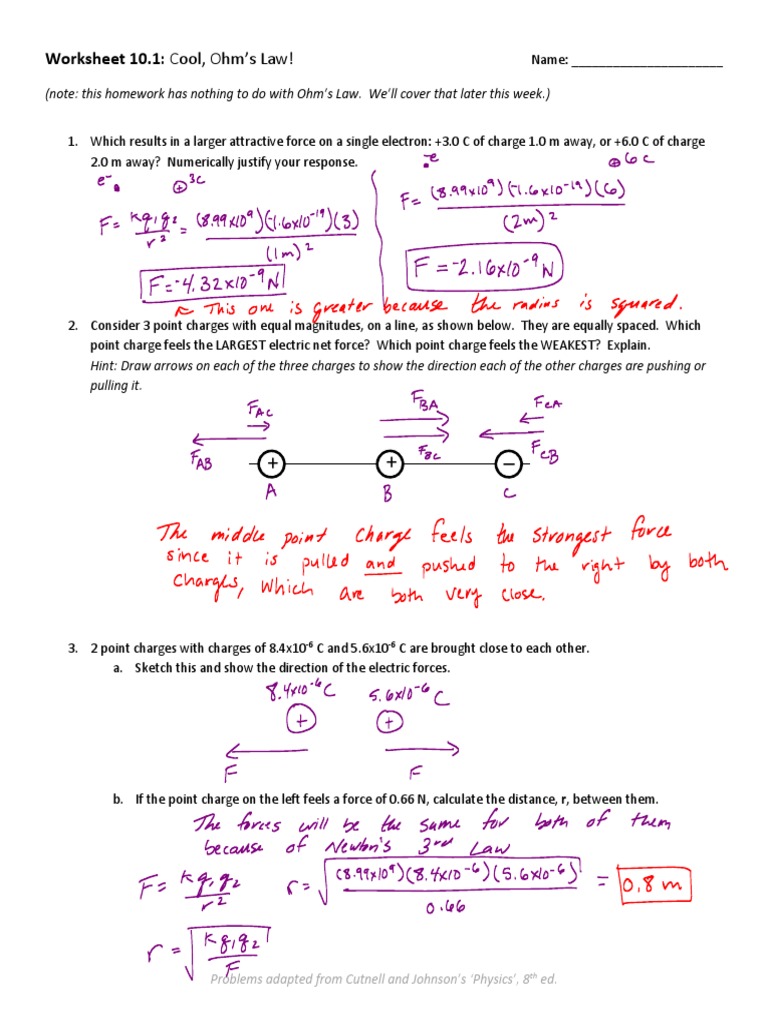 Worksheet 10.1: Cool, Ohm's Law! Name: ______________________
(note: this homework has nothing to do with Ohm's Law. We'll cover that later this week.)
1. Which results in a larger attractive force on a single electron: +3.0 C of charge 1.0 m away, or +6.0 C of charge
2.0 m away? Numerically justify your response.
e⁻ + 3C
F = kq₁q₂/r² = (8.99x10⁹)(-1.6x10⁻¹⁹)(3)/(1m)²
F=-4.32x10⁻⁹N
-e + 6C
F= (8.99x10⁹)(-1.6x10⁻¹⁹)(6)/(2m)²
F=-2.16x10⁻⁹N
This one is greater because the radius is squared.
2. Consider 3 point charges with equal magnitudes, on a line, as shown below. They are equally spaced. Which
point charge feels the LARGEST electric net force? Which point charge feels the WEAKEST? Explain.
Hint: Draw arrows on each of the three charges to show the direction each of the other charges are pushing or
pulling it.
F_AC F_BA F_CA
F_AB F_BC F_CB
+ + −
A B C
The middle point charge feels the strongest force
since it is pulled and pushed to the right by both
charges, which are both very close.
3. 2 point charges with charges of 8.4x10⁻⁶ C and 5.6x10⁻⁶ C are brought close to each other.
a. Sketch this and show the direction of the electric forces.
8.4x10⁻⁶C 5.6x10⁻⁶C
+ +
F F
b. If the point charge on the left feels a force of 0.66 N, calculate the distance, r, between them.
The forces will be the same for both of them
because of Newton's 3rd Law
F = kq₁q₂/r² r = √((8.99x10⁹)(8.4x10⁻⁶)(5.6x10⁻⁶)/0.66) = 0.8 m
r = √(kq₁q₂/F)
Problems adapted from Cutnell and Johnson's 'Physics', 8th ed.